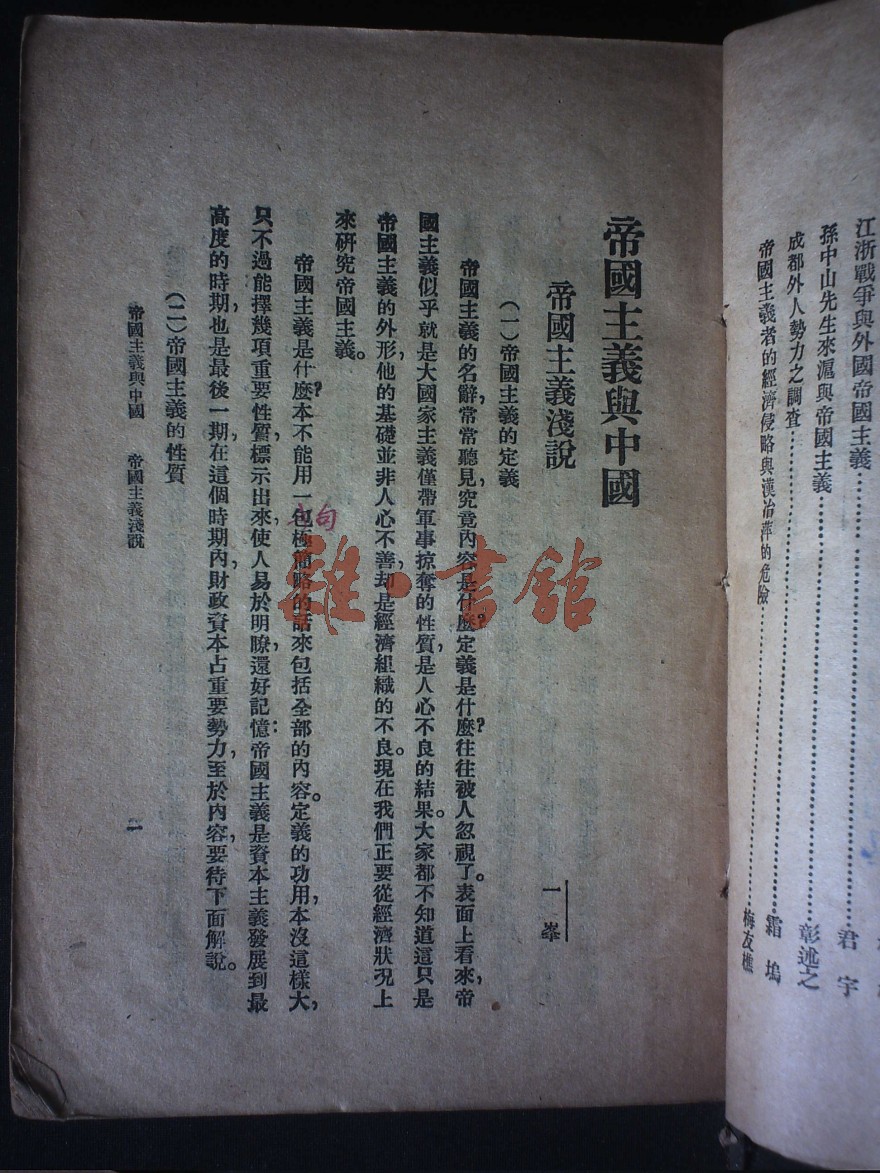 江浙戰爭與外國帝國主義……………………君宇
孫中山先生來滬與帝國主義……………………彰述之
成都外人勢力之調查……………………霜塢
帝國主義者的經濟侵略與漢冶萍的危險……………………梅友樵
帝國主義與中國
帝國主義淺說
一峯
(一)帝國主義的定義
帝國主義的名辭,常常聽見,究竟內容是什麼?定義是什麼?往往被人忽視了。表面上看來,帝
國主義似乎就是大國家主義僅帶軍事掠奪的性質,是人心不良的結果。大家都不知道這只是
帝國主義的外形,他的基礎並非人心不善,却是經濟組織的不良。現在我們正要從經濟狀况上
來研究帝國主義。
帝國主義是什麼?本不能用一包極簡略的話來包括全部的內容。定義的功用,本沒這樣大,
只不過能擇幾項重要性質,標示出來,使人易於明瞭,還好記憶:帝國主義是資本主義發展到最
高度的時期,也是最後一期,在這個時期內,財政資本占重要勢力,至於內容,要待下面解說。
(二)帝國主義的性質
帝國主義與中國 帝國主義淺說
句
雜·書館